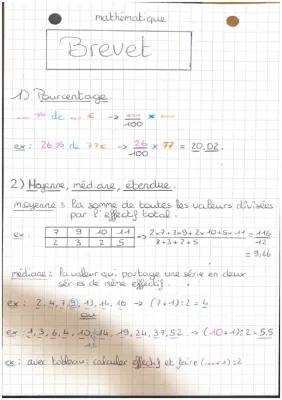 mathématique
Brevet
1) Pourcentage
... % de ... € → .../100 × ...
ex : 26% de 77€ → 26/100 × 77 = 20,02.
2) Moyenne, médiane, étendue.
moyenne : la somme de toutes les valeurs divisées
par l'effectif total.
ex : 7 9 10 11 → 2x7+3x9+2x10+5x11 = 116
2 3 2 5 2+3+2+5 12
= 9,66
médiane : la valeur qui partage une série en deux
séries de même effectif.
ex : 2, 4, 7, 9, 13, 14, 16 → (7+1):2 = 4
ou
ex : 1, 3, 6, 4, 10, 14, 19, 24, 37, 52 → (10+1):2 = 5,5
ex : avec tableau : calculer effectif et faire (...+1):2